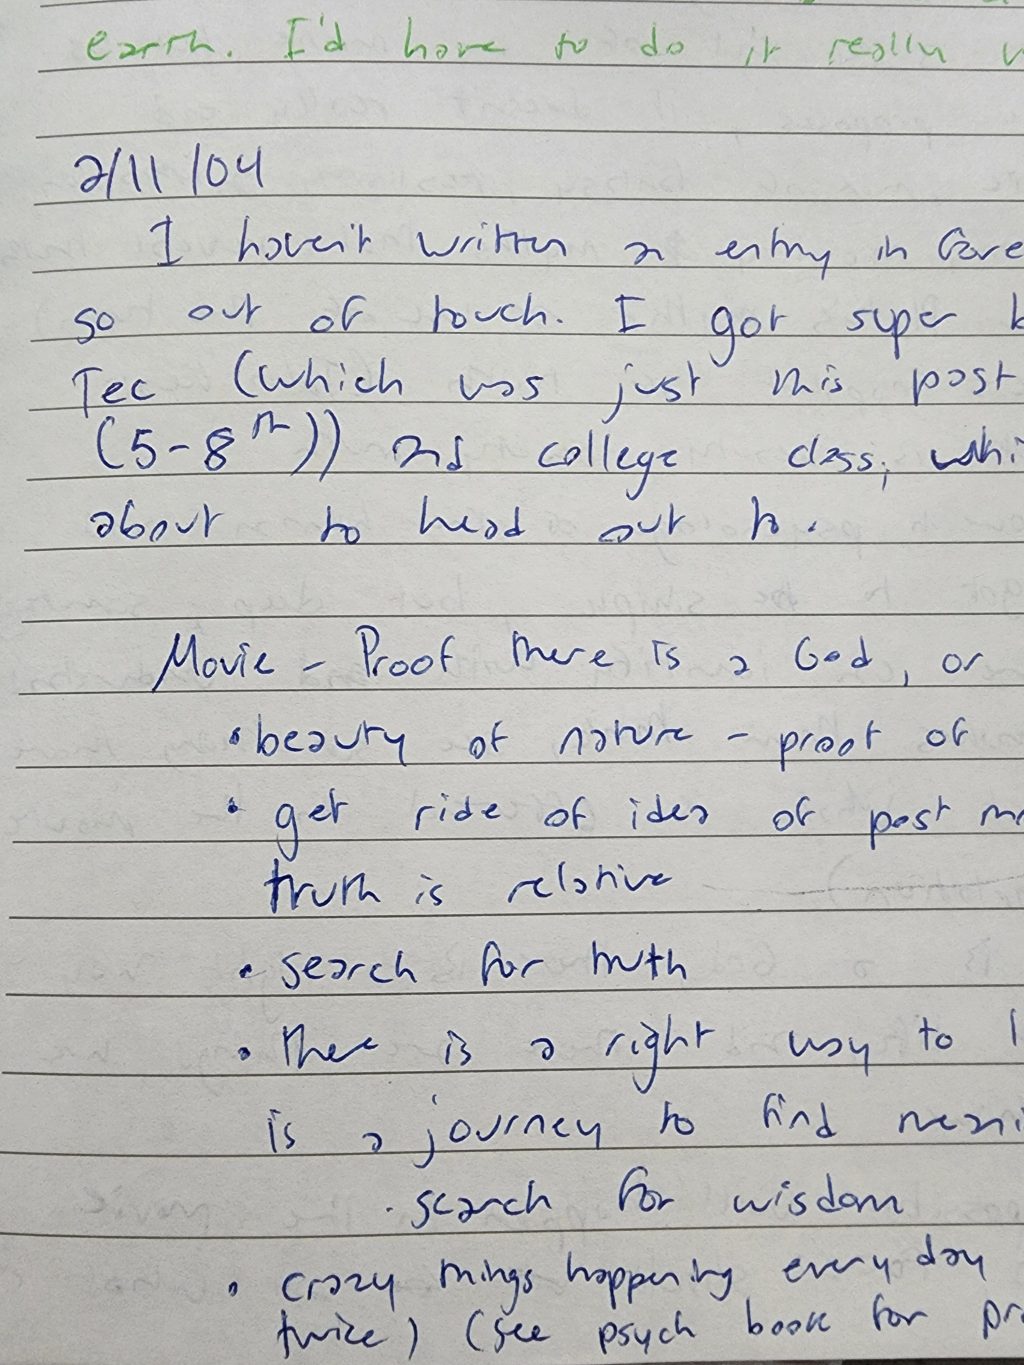 earth. I'd have to do it really
2/11/04
I haven't written a entry in fore
so out of touch. I got super b
Tec (which was just this past
(5-8th)) and college class, whi
about to head out to.
Movie - Proof there is a God, or
• beauty of nature - proof of
• get ride of idea of post m
truth is relative
• search for truth
• there is a right way to l
is a journey to find meani
• search for wisdom
• crazy things happening every day
twice) (see psych book for pr